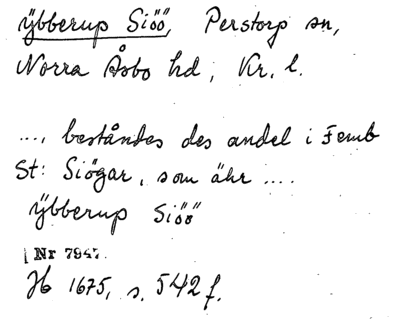 ÿbberup Siöö, Perstorp sn,
Norra Åsbo hd, Kr. l.
..., beståndes des andel i Femb
St: Siögar, som ähr ....
ÿbberup Siöö
Nr 7947.
Jb 1675, s. 542 f.